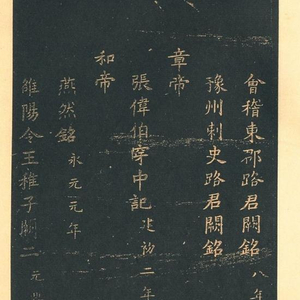 會稽東郡路君闕銘 八年
豫州刺史路君闕銘
章帝
張偉伯穿中記 建初二年
和帝
燕然銘 永元元年
雒陽令王稚子闕二 元